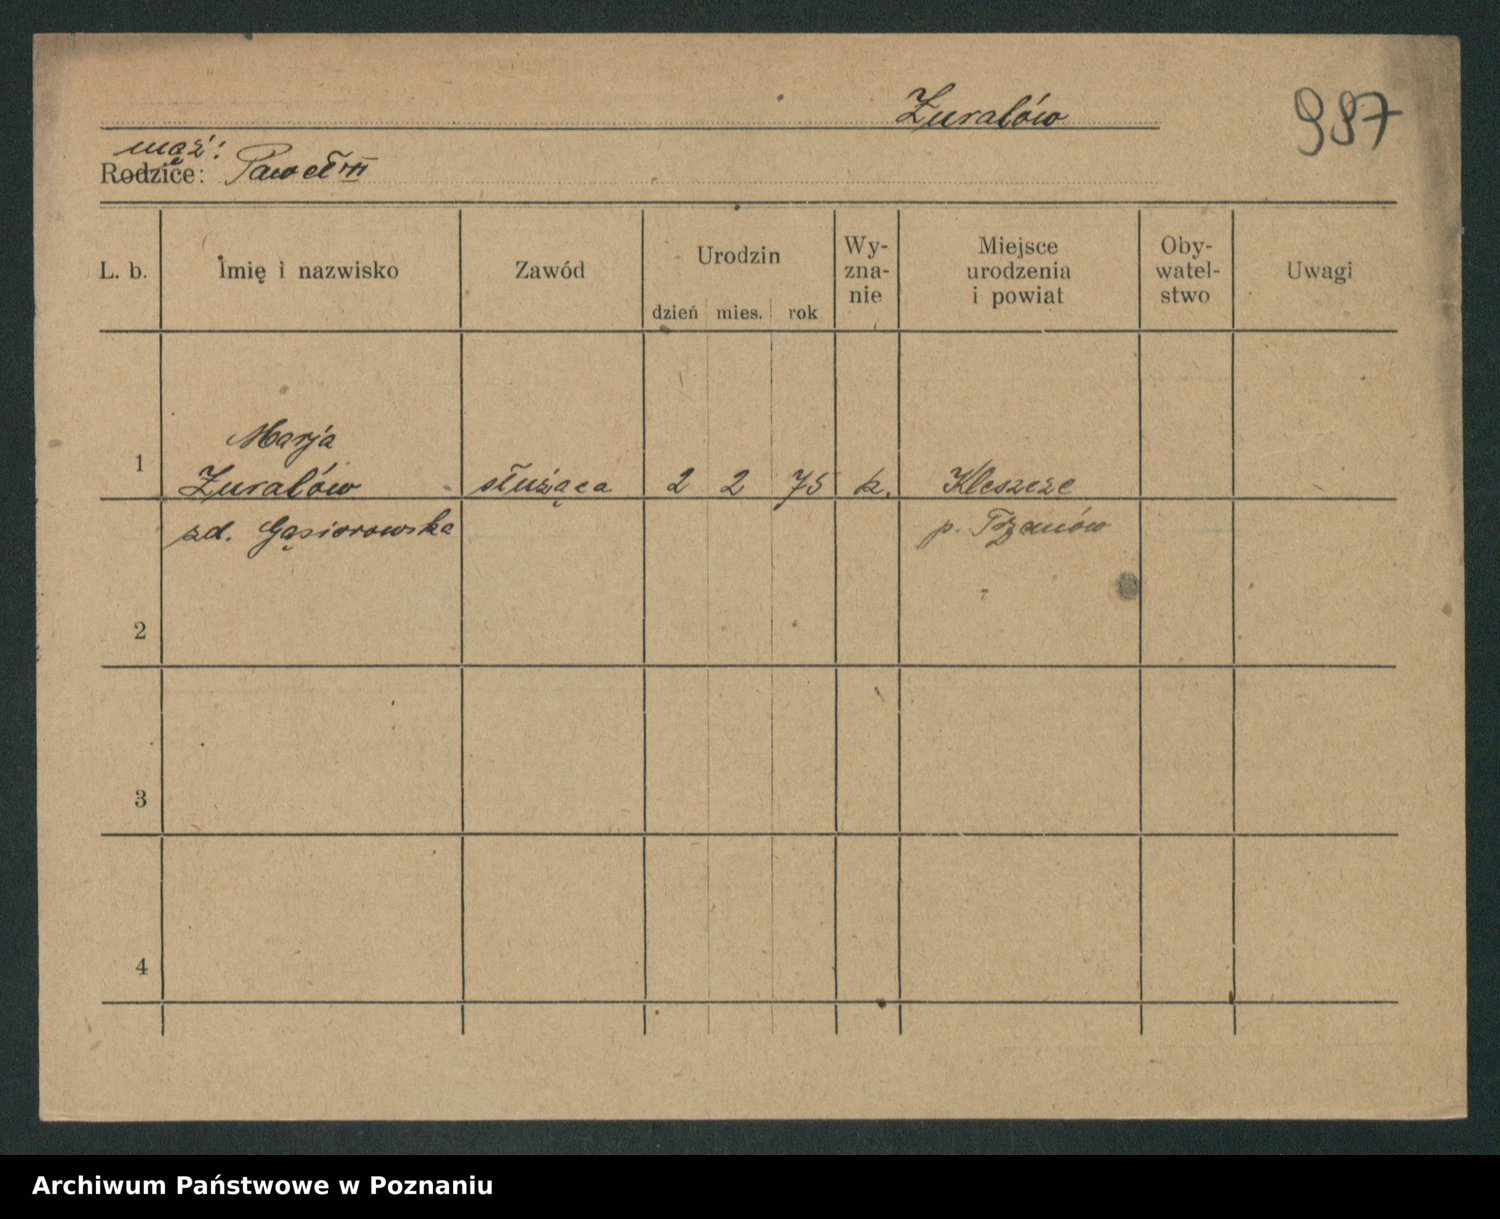 Zuralów
987
mąż:
Rodzice: Paweł III
L. b. Imię i nazwisko Zawód Urodzin Wy-zna-nie Miejsce urodzenia i powiat Oby-watel-stwo Uwagi
dzień mies. rok
Marja
1 Zuralów służąca 2 2 75 k. Kleszcze
zd. Gąsiorowska p.
2
3
4
Archiwum Państwowe w Poznaniu